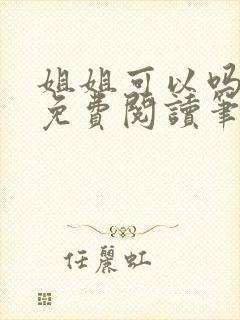 姐姐可以吗
免費閱讀筆
任麗虹